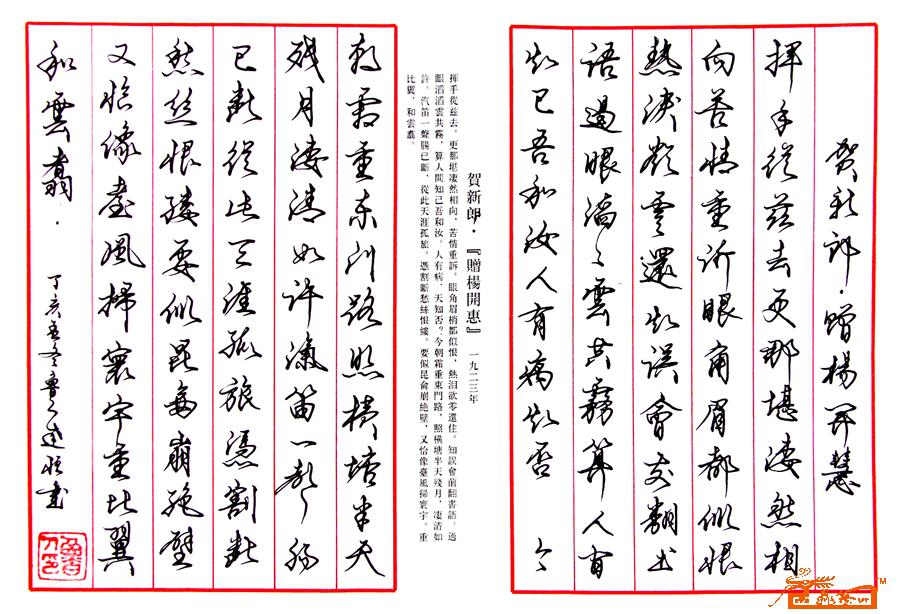 贺新郎·赠楊開慧
揮手從茲去更那堪凄然相
向苦情重訴眼角眉都似恨
熱淚欲零還知誤會前翻書
語過眼滔々雲共霧算人間
知己吾和汝人有病知否 今
賀新郎·『贈楊開惠』 一九二三年
揮手從茲去。更那堪凄然相向，苦情重訴。眼角眉梢都似恨，熱泪欲零還住。知誤會前翻書語。過
眼滔滔雲共霧，算人間知己吾和汝。人有病，天知否？今朝霜重東門路，照橫塘半天殘月，凄清如
許。汽笛一聲腸已斷，從此天涯孤旅。憑割斷愁絲恨縷。要似昆侖崩絕壁，又恰像臺風掃寰宇。重
比翼，和雲翥。
朝霜重東門路照橫塘半天
残月凄清如許汽笛一聲腸
已斷從此天涯孤旅憑割斷
愁絲恨縷要似昆侖崩絕壁
又恰像臺風掃寰宇重比翼
和雲翥.
丁亥 書
TM